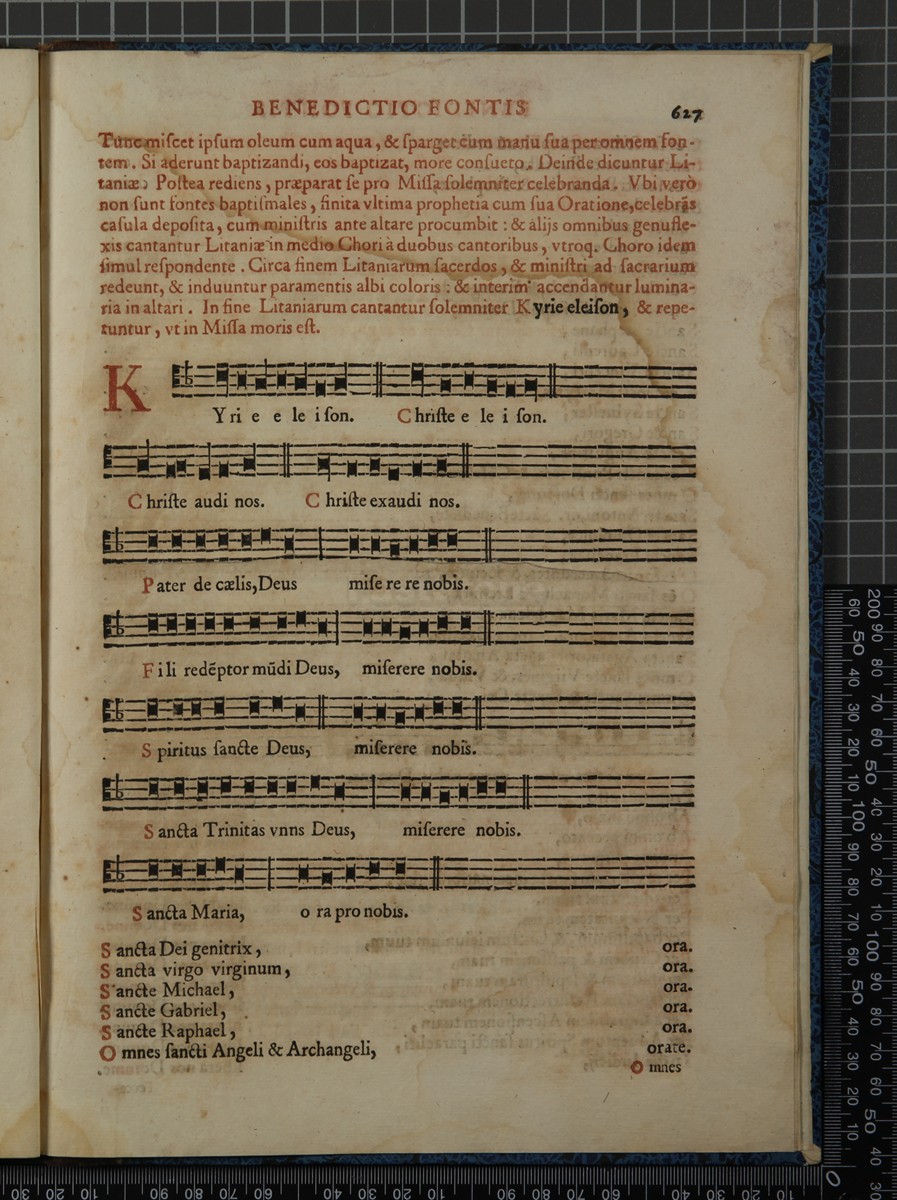 BENEDICTIO FONTIS
627
Tunc miſcet ipſum oleum cum aqua, & ſparget eum manu ſua per omnem fon-
tem. Si aderunt baptizandi, eos baptizat, more conſueto. Deinde dicuntur Li-
taniæ. Poſtea rediens, præparat ſe pro Miſſa ſolemniter celebranda. Vbi verò
non ſunt fontes baptiſmales, finita vltima prophetia cum ſua Oratione, celebrãs
caſula depoſita, cum miniſtris ante altare procumbit: & alijs omnibus genufle-
xis cantantur Litaniæ in medio Chori à duobus cantoribus, vtroq. Choro idem
ſimul reſpondente. Circa finem Litaniarum ſacerdos, & miniſtri ad ſacrarium
redeunt, & induuntur paramentis albi coloris: & interim accendantur lumina-
ria in altari. In fine Litaniarum cantantur ſolemniter Kyrie eleiſon, & repe-
tuntur, vt in Miſſa moris eſt.
K Yri e e le i ſon. Chriſte e le i ſon.
Chriſte audi nos. Chriſte exaudi nos.
Pater de cælis, Deus miſe re re nobis.
Fi li redẽptor mũdi Deus, miſerere nobis.
Spiritus ſancte Deus, miſerere nobis.
Sancta Trinitas vnns Deus, miſerere nobis.
Sancta Maria, o ra pro nobis.
Sancta Dei genitrix, ora.
Sancta virgo virginum, ora.
Sancte Michael, ora.
Sancte Gabriel, ora.
Sancte Raphael, ora.
Omnes ſancti Angeli & Archangeli, orate.
Omnes